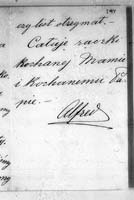 czy list otrzymał.—
Całuję rączki
Kochanej Mamie
i Kochanemu
nie.—
Alfred